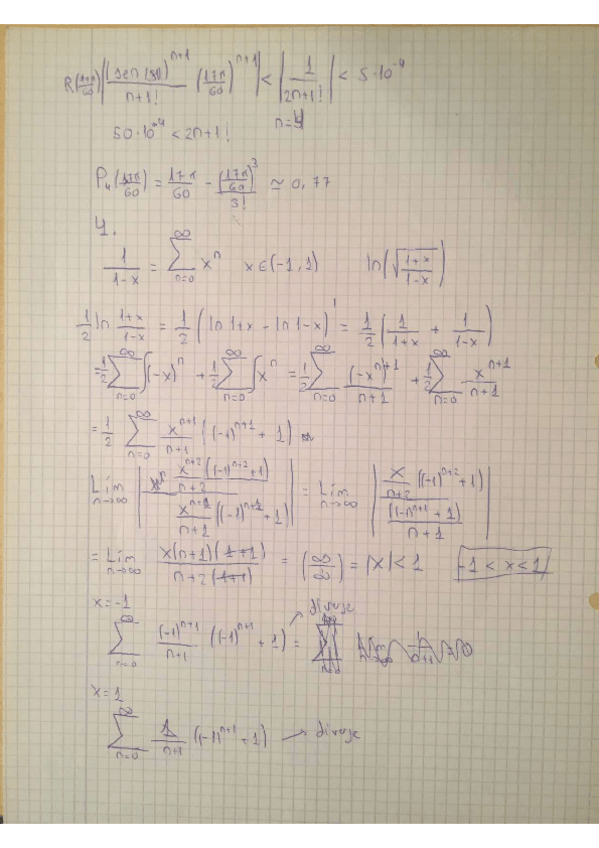 R(17π/60) |(sen 180)^(n+1)/(n+1!) (17π/60)^(n+1)| < |1/(2n+1!)| < 5·10^-4
50·10^-4 < 2n+1! n=4
P₄(17π/60) = 17π/60 - (17π/60)^3/3! ≃ 0,77
4.
1/(1-x) = ∑_{n=0}^{∞} x^n x∈(-1,1) ln(√((1+x)/(1-x)))
1/2 ln (1+x)/(1-x) = 1/2 (ln 1+x - ln 1-x)' = 1/2 (1/(1+x) + 1/(1-x))
= 1/2 ∑_{n=0}^{∞} ∫(-x)^n + 1/2 ∑_{n=0}^{∞} ∫x^n = 1/2 ∑_{n=0}^{∞} (-x^n)^(+1)/(n+1) + 1/2 ∑_{n=0}^{∞} x^(n+1)/(n+1)
= 1/2 ∑_{n=0}^{∞} x^(n+1)/(n+1) ((-1)^(n+1) + 1)
Lím_{n→∞} |(x^(n+2)((-1)^(n+2)+1)/(n+2))/(x^(n+1)/(n+1) ((-1)^(n+1)+1))| = Lím_{n→∞} |(x/(n+2) ((-1)^(n+2)+1))/(((-1)^(n+1)+1)/(n+1))|
= Lím_{n→∞} x(n+1)(1+1)/(n+2(1+1)) = (∞/∞) = |x| < 1 -1 < x < 1
x=-1
∑_{n=0}^{∞} (-1)^(n+1)/(n+1) ((-1)^(n+1) + 1) = → diverge
x=1
∑_{n=0}^{∞} 1/(n+1) ((-1)^(n+1) + 1) → diverge